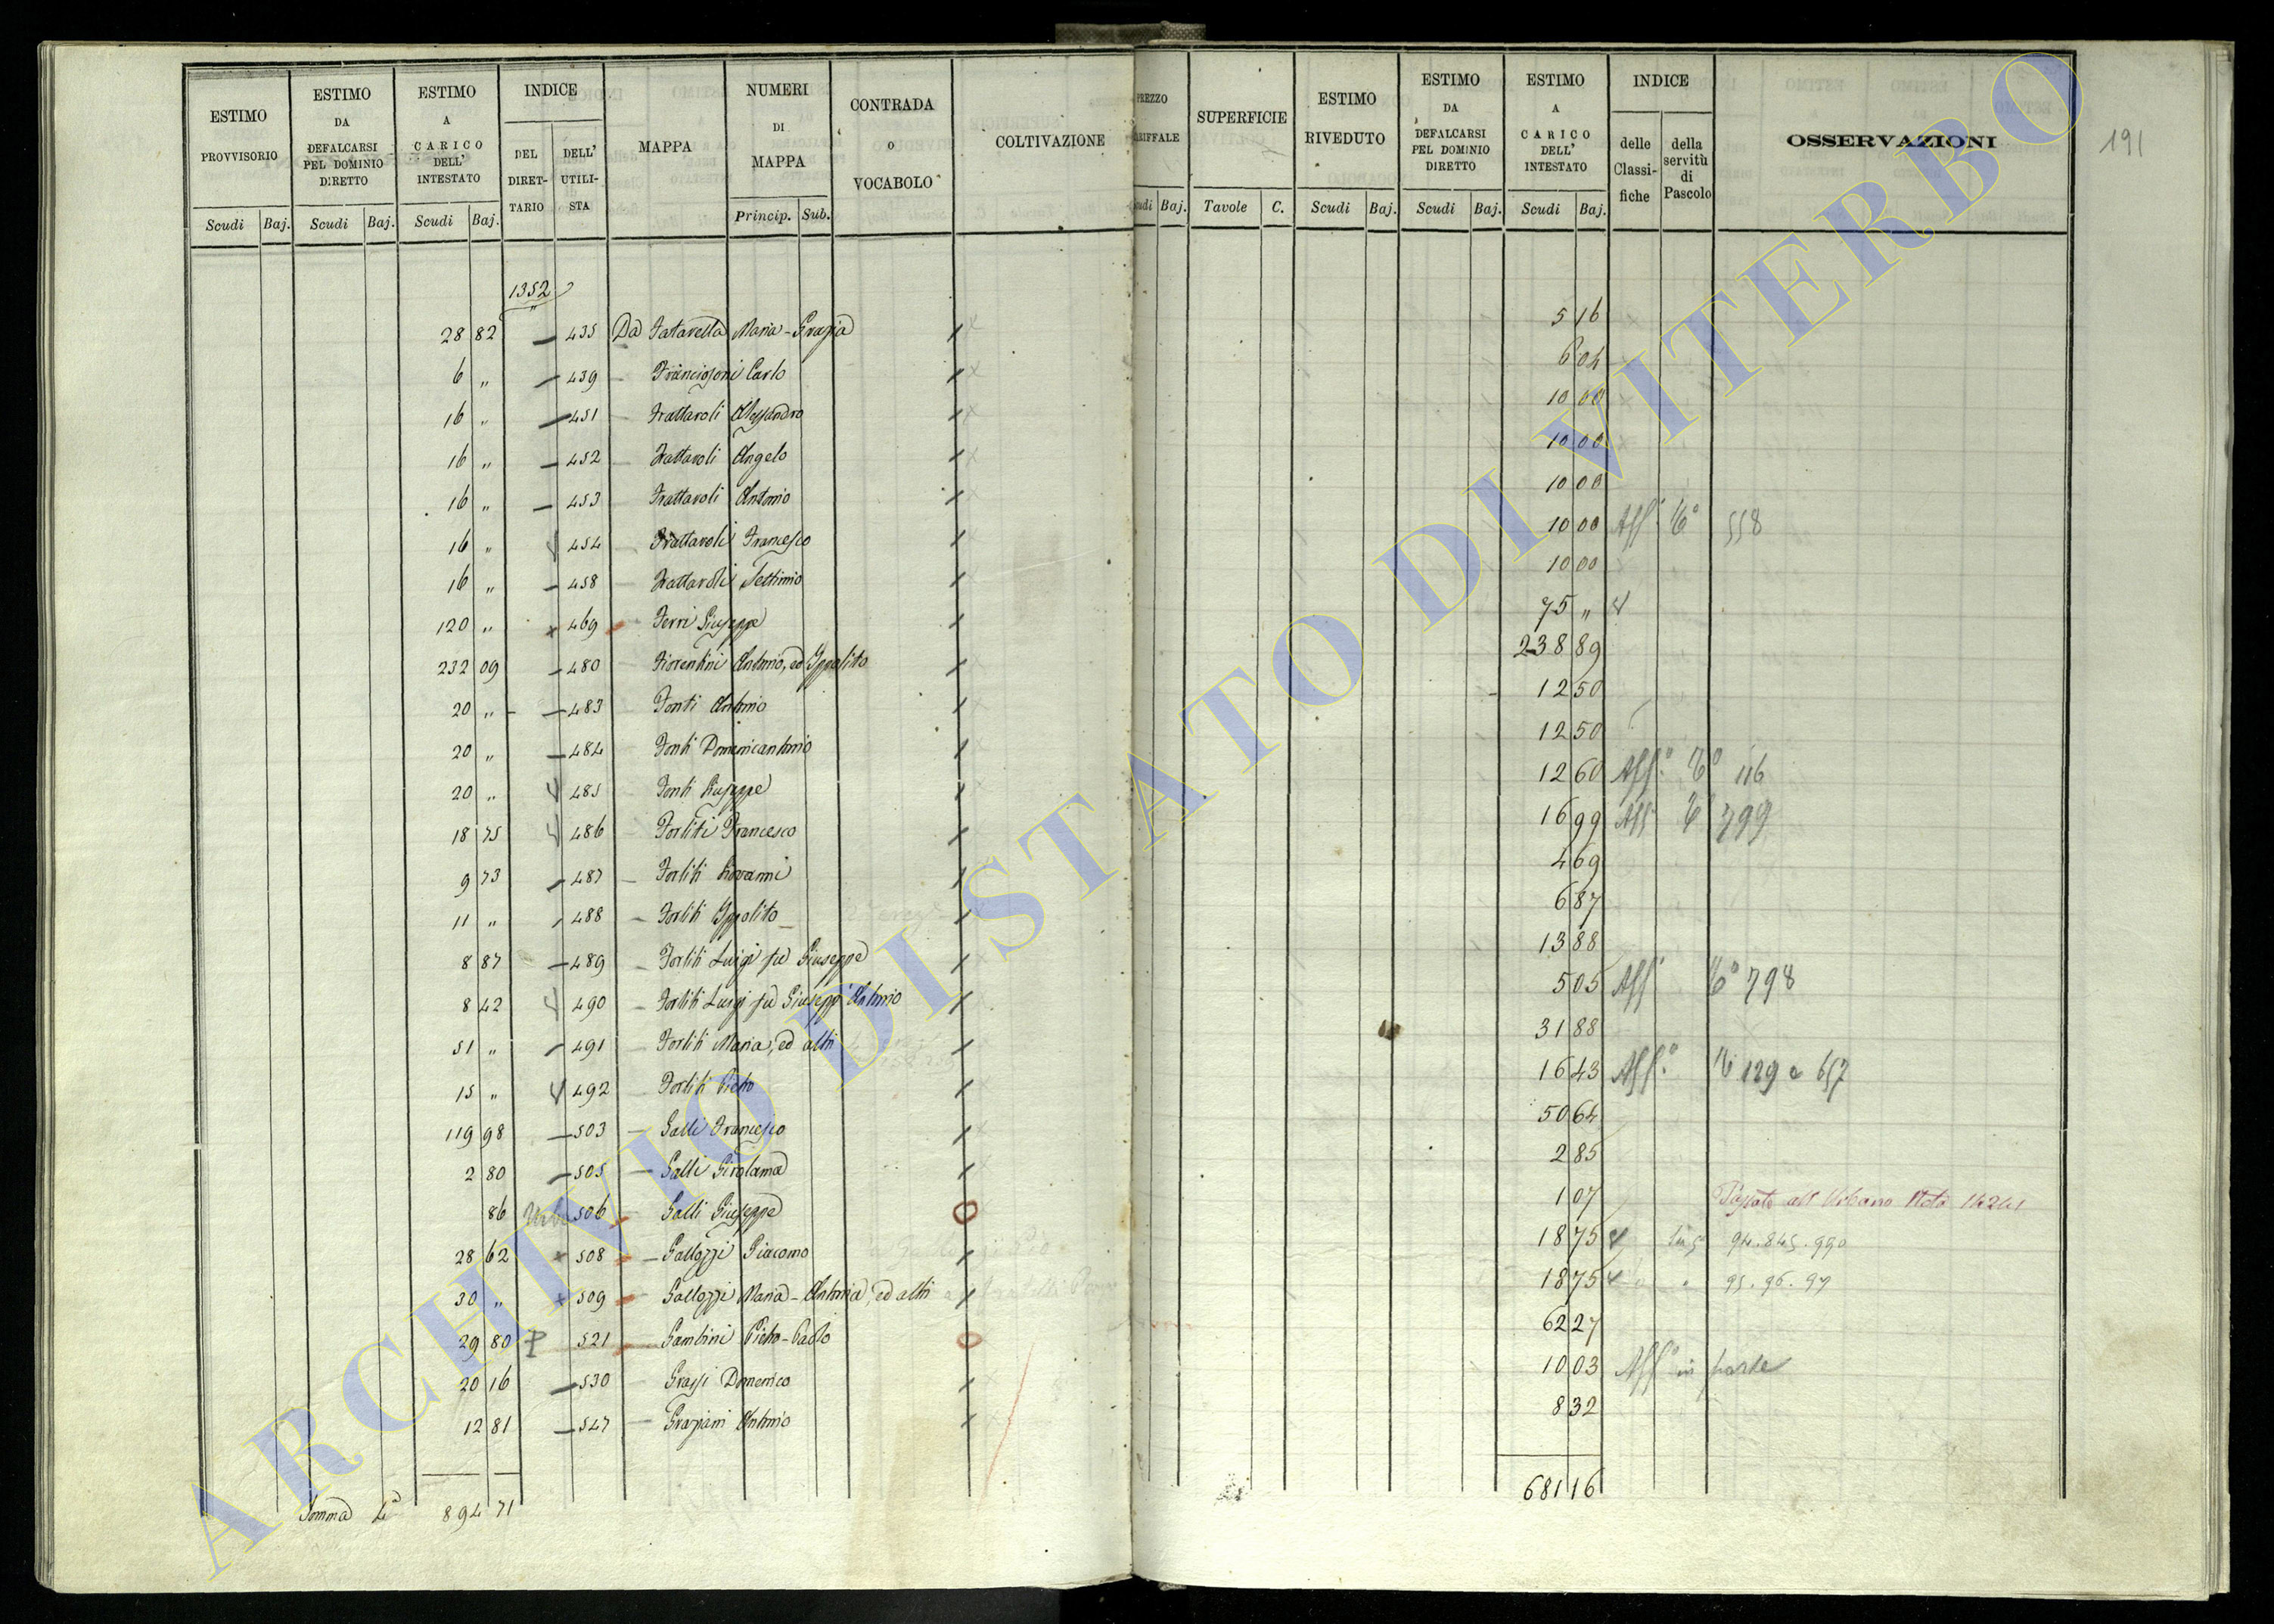 ESTIMO PROVVISORIO Scudi Baj.
ESTIMO DA DEFALCARSI PEL DOMINIO DIRETTO Scudi Baj.
ESTIMO A CARICO DELL' INTESTATO Scudi Baj.
INDICE DEL DIRETTARIO DELL' UTILISTA
MAPPA
NUMERI DI MAPPA Princip. Sub.
CONTRADA o VOCABOLO
COLTIVAZIONE
PREZZO RIFFALE udi Baj.
SUPERFICIE Tavole C.
ESTIMO RIVEDUTO Scudi Baj.
ESTIMO DA DEFALCARSI PEL DOMINIO DIRETTO Scudi Baj.
ESTIMO A CARICO DELL' INTESTATO Scudi Baj.
INDICE delle Classifiche della servitù di Pascolo
OSSERVAZIONI
191
1352
28 82 — 435 Da Fatarella Maria-Grazia 5 16
6 „ — 439 — Francioyoni Carlo 6 04
16 „ — 451 — Frattaroli Alessandro 10 00
16 „ — 452 — Frattaroli Angelo 10 00
16 „ — 453 — Frattaroli Antonio 10 00
16 „ 454 — Frattaroli Francesco 10 00 Aff. 558
16 „ — 458 — Frattaroli Settimio 10 00
120 „ x 469 — Ferri Giuseppe 75 „
232 09 — 480 — Fiorentini Antonio, ed Ippolito 238 89
20 „ — 483 — Fonti Antonio 12 50
20 „ — 484 Fonti Domenicantonio 12 50
20 „ 485 — Fonti Giuseppe 12 60 Aff.° 116
18 75 486 Fortiti Francesco 16 99 Aff 799
9 73 — 487 — Fortiti Giovanni 4 69
11 „ — 488 — Fortiti Ippolito 6 87
8 87 — 489 — Fortiti Luigi fu Giuseppe 13 88
8 42 490 — Fortiti Luigi fu Giusepp' Antonio 5 05 Aff 798
51 „ — 491 — Fortiti Maria, ed altri 31 88
15 „ 492 — Fortiti Pietro 16 43 Aff.° 129 e 657
119 98 — 503 — Galli Francesco 50 64
2 80 — 505 — Galli Girolama 2 85
86 Urb 506 — Galli Giuseppe 1 07 Passato all' Urbano
28 62 x 508 — Gallozzi Giacomo 18 75 94. 845. 990
30 „ x 509 — Gallozzi Maria-Antonia, ed altri 18 75 „ 95. 96. 97
29 80 P 521 — Gambini Pietro-Paolo 62 27
20 16 — 530 — Grassi Domenico 10 03 Aff.° in parte
12 81 — 547 — Graziani Antonio 8 32
Somma 894 71 681 16
ARCHIVIO DI STATO DI VITERBO